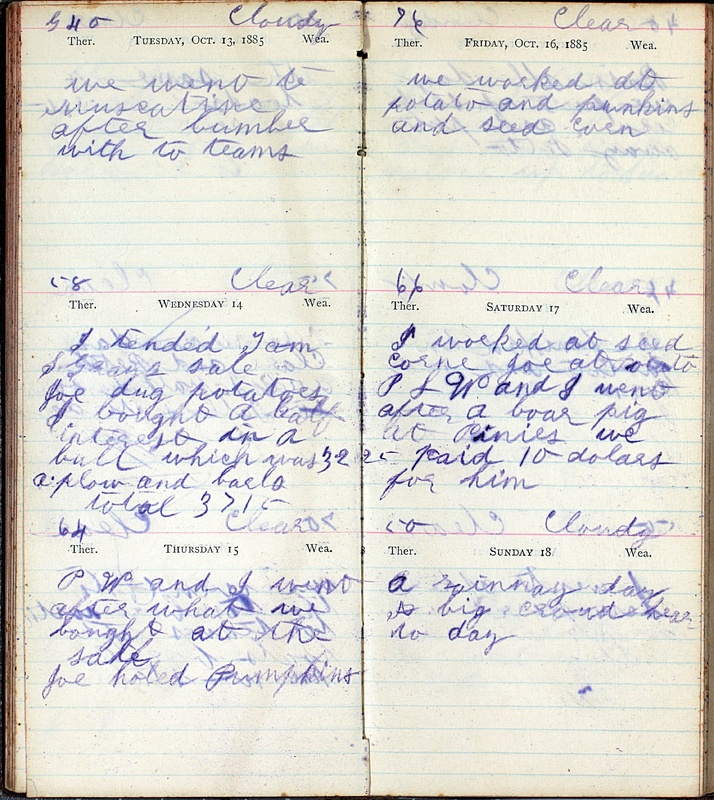 40 Cloudy
Ther. TUESDAY, OCT. 13, 1885 Wea.
we went to
muscatine
after lumber
with to teams
58 Clear
Ther. WEDNESDAY 14 Wea.
I tended Jam
sale
Joe dug potatoes
I bought a half
interest in a
bull which was 32 25
a plow and
total 3715
64 Clear
Ther. THURSDAY 15 Wea.
P W and I went
after what we
bought at the
sale
Joe holed Pumpkins
76 Clear
Ther. FRIDAY, OCT. 16, 1885 Wea.
we worked at
potato and punkins
and seed corn
66 Clear
Ther. SATURDAY 17 Wea.
I worked at seed
corne Joe at potato
P W and I went
after a boar pig
at Pinies we
paid 10 dolars
for him
50 Cloudy
Ther. SUNDAY 18 Wea.
a rainnay day
A big croud hear
to day